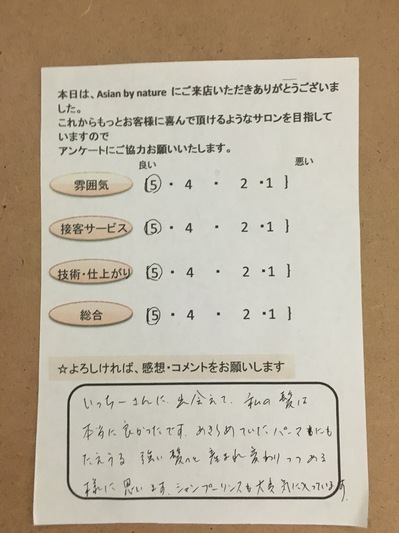 本日は、Asian by nature にご来店いただきありがとうございま
した。
これからもっとお客様に喜んで頂けるようなサロンを目指して
いますので
アンケートにご協力お願いいたします。
良い 悪い
雰囲気 【5 ・ 4 ・ 2 ・1 】
接客サービス 【5 ・ 4 ・ 2 ・1 】
技術・仕上がり 【5 ・ 4 ・ 2 ・1 】
総合 【5 ・ 4 ・ 2 ・1 】
☆よろしければ、感想・コメントをお願いします
いっちーさんに出会えて、私の髪は
本当に良かったです。あきらめていたパーマにも
たえうる 強い髪へと 産まれ変わりつつある
様に思います。シャンプーリンスも大変気に入っています。